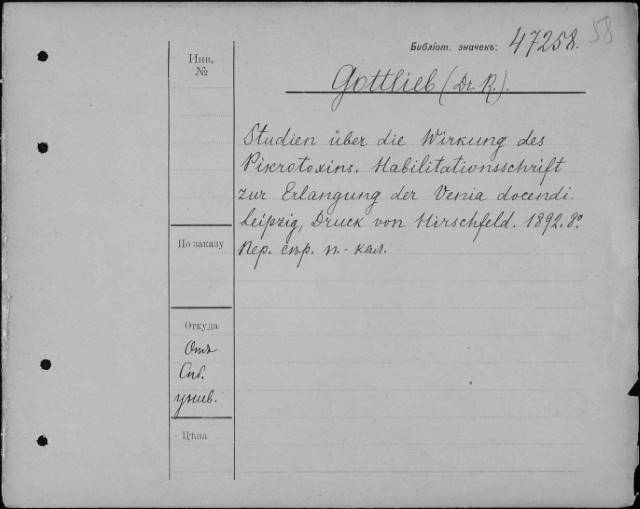 58
Библіот. значекъ: 47258.
Инв.
№
Gottlieb (Dr. R.).
Studien über die Wirkung des
Pikrotoxins. Habilitationsschrift
zur Erlangung der Venia docendi.
Leipzig, Druck von Hirschfeld. 1892. 8º.
Пер. сѣр. п.-кал.
По заказу
Откуда
Отъ
Спб.
унив.
Цѣна